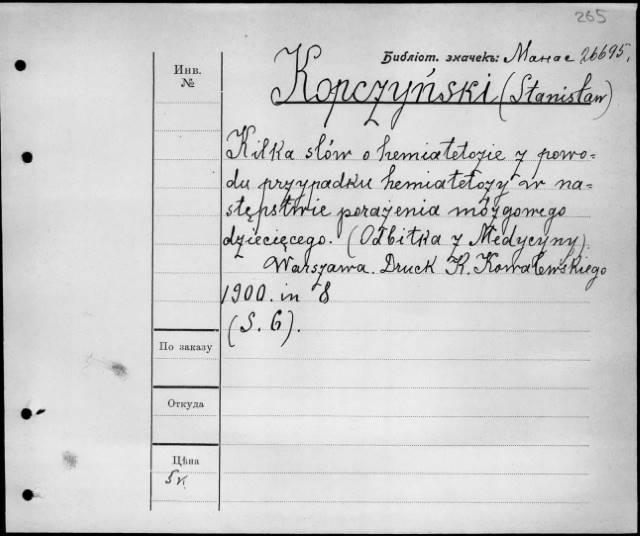 265
Библіот. значекъ: Манас 26695.
Инв.
№
Kopczyński (Stanisław)
Kilka słów o hemiatetozie z powo-
du przypadku hemiatetozy w na-
stępstwie porażenia mózgowego
dziecięcego. (Odbitka z Medycyny).
Warszawa. Druck K. Kowalewskiego
1900. in 8
(S. 6).
По заказу
Откуда
Цѣна
5 к.